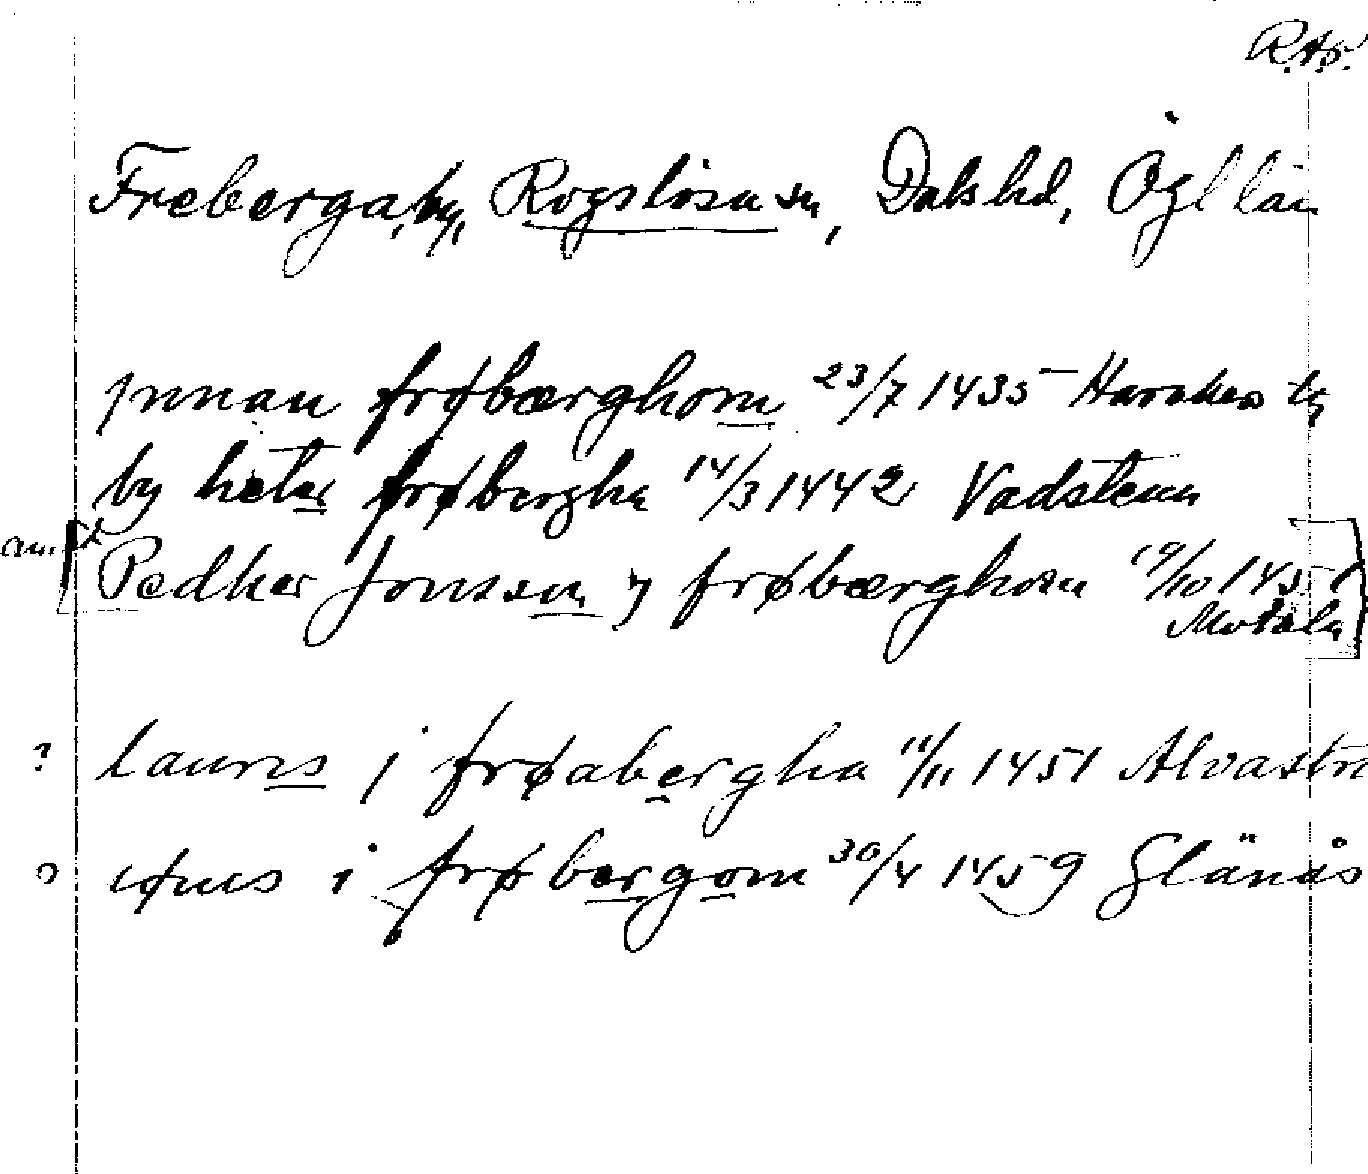 R.A.
Freberga, by, Rogslösa sn, Dals hd, Ögl län
jnnan frøbærghom 23/7 1435 Harakers
by heter frøbergha 14/3 1442 Vadstena
Pedher Jonsson j frøbærghom 19/10 145
Motala
? lauris j frøabergha 11/11 1451 Alvastra
i frøbergom 30/4 1459 Glänås